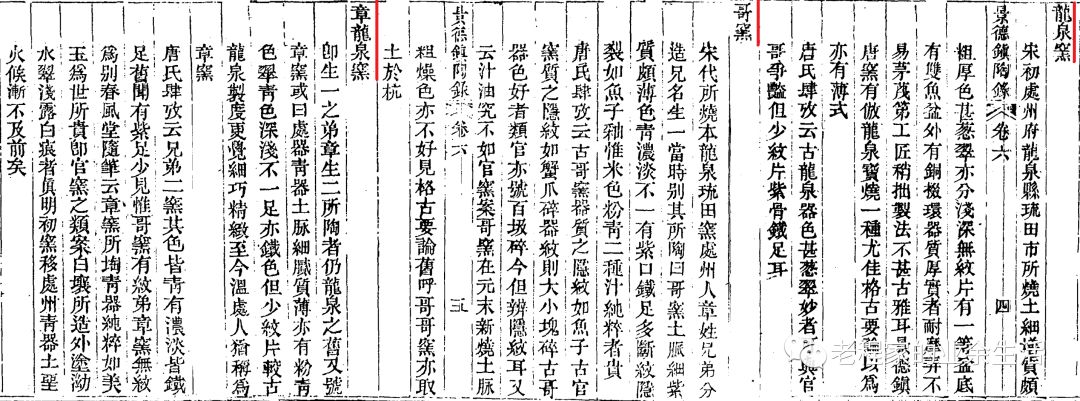 龍泉窯
宋初處州府龍泉縣琉田市所燒土細墡質頗
景德鎮陶錄 卷六 四
粗厚色甚葱翠亦分淺深無紋片有一等盆底
有雙魚盆外有銅掇環器質厚實者耐磨弄不
易茅蔑第工匠稍拙製法不甚古雅耳景德鎮
唐窯有倣龍泉寶燒一種尤佳格古要以爲
亦有薄式
唐氏肆攷云古龍泉器色甚葱翠妙者與官
哥爭豔但少紋片紫骨鐵足耳
哥窯
宋代所燒本龍泉琉田窯處州人章姓兄弟分
造兄名生一當時別其所陶曰哥窯土脈細紫
質頗薄色青濃淡不一有紫口鐵足多斷紋隱
裂如魚子釉惟米色粉青二種汁純粹者貴
唐氏肆攷云古哥窯器質之隱紋如魚子古官
窯質之隱紋如蟹爪碎器紋則大小塊碎古哥
器色好者類官亦號百圾碎今但辨隱紋耳又
云汁油究不如官窯案哥窯在元末新燒土脈
景德鎮陶錄 卷六 五
粗燥色亦不好見格古要論舊呼哥哥窯亦取
土於杭
章龍泉窯
即生一之弟章生二所陶者仍龍泉之舊又號
章窯或曰處器青器土脈細膩質薄亦有粉青
色翠青色深淺不一足亦鐵色但少紋片較古
龍泉製度更覺細巧精緻至今溫處人猶稱爲
章窯
唐氏肆攷云兄弟二窯其色皆青有濃淡皆鐵
足舊聞有紫足少見惟哥窯有紋弟章窯無紋
爲別春風堂隨筆云章窯所掏青器純粹如美
玉爲世所貴即官窯之類案白壤所造外塗泑
水翠淺露白痕者眞明初窯移處州青器土堊
火候漸不及前矣